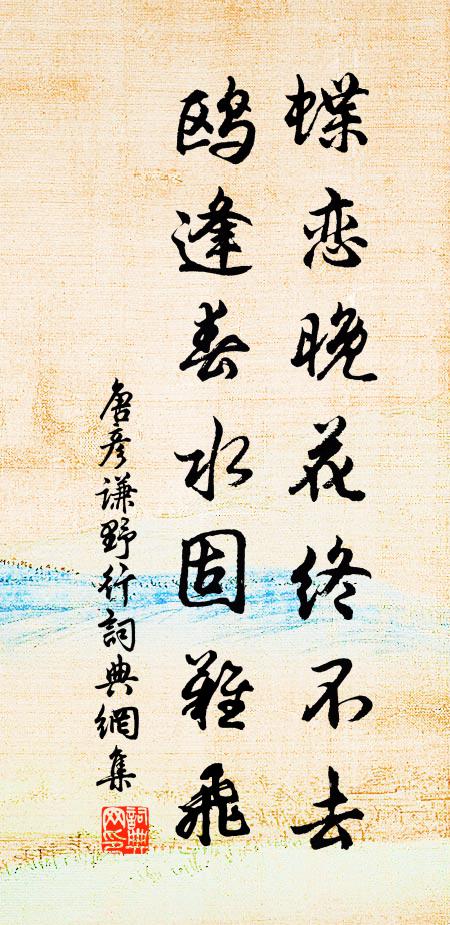 蝶恋晚花终不去
鸥逢春水固难飞
唐彦谦野行词典網集
詞典
网印